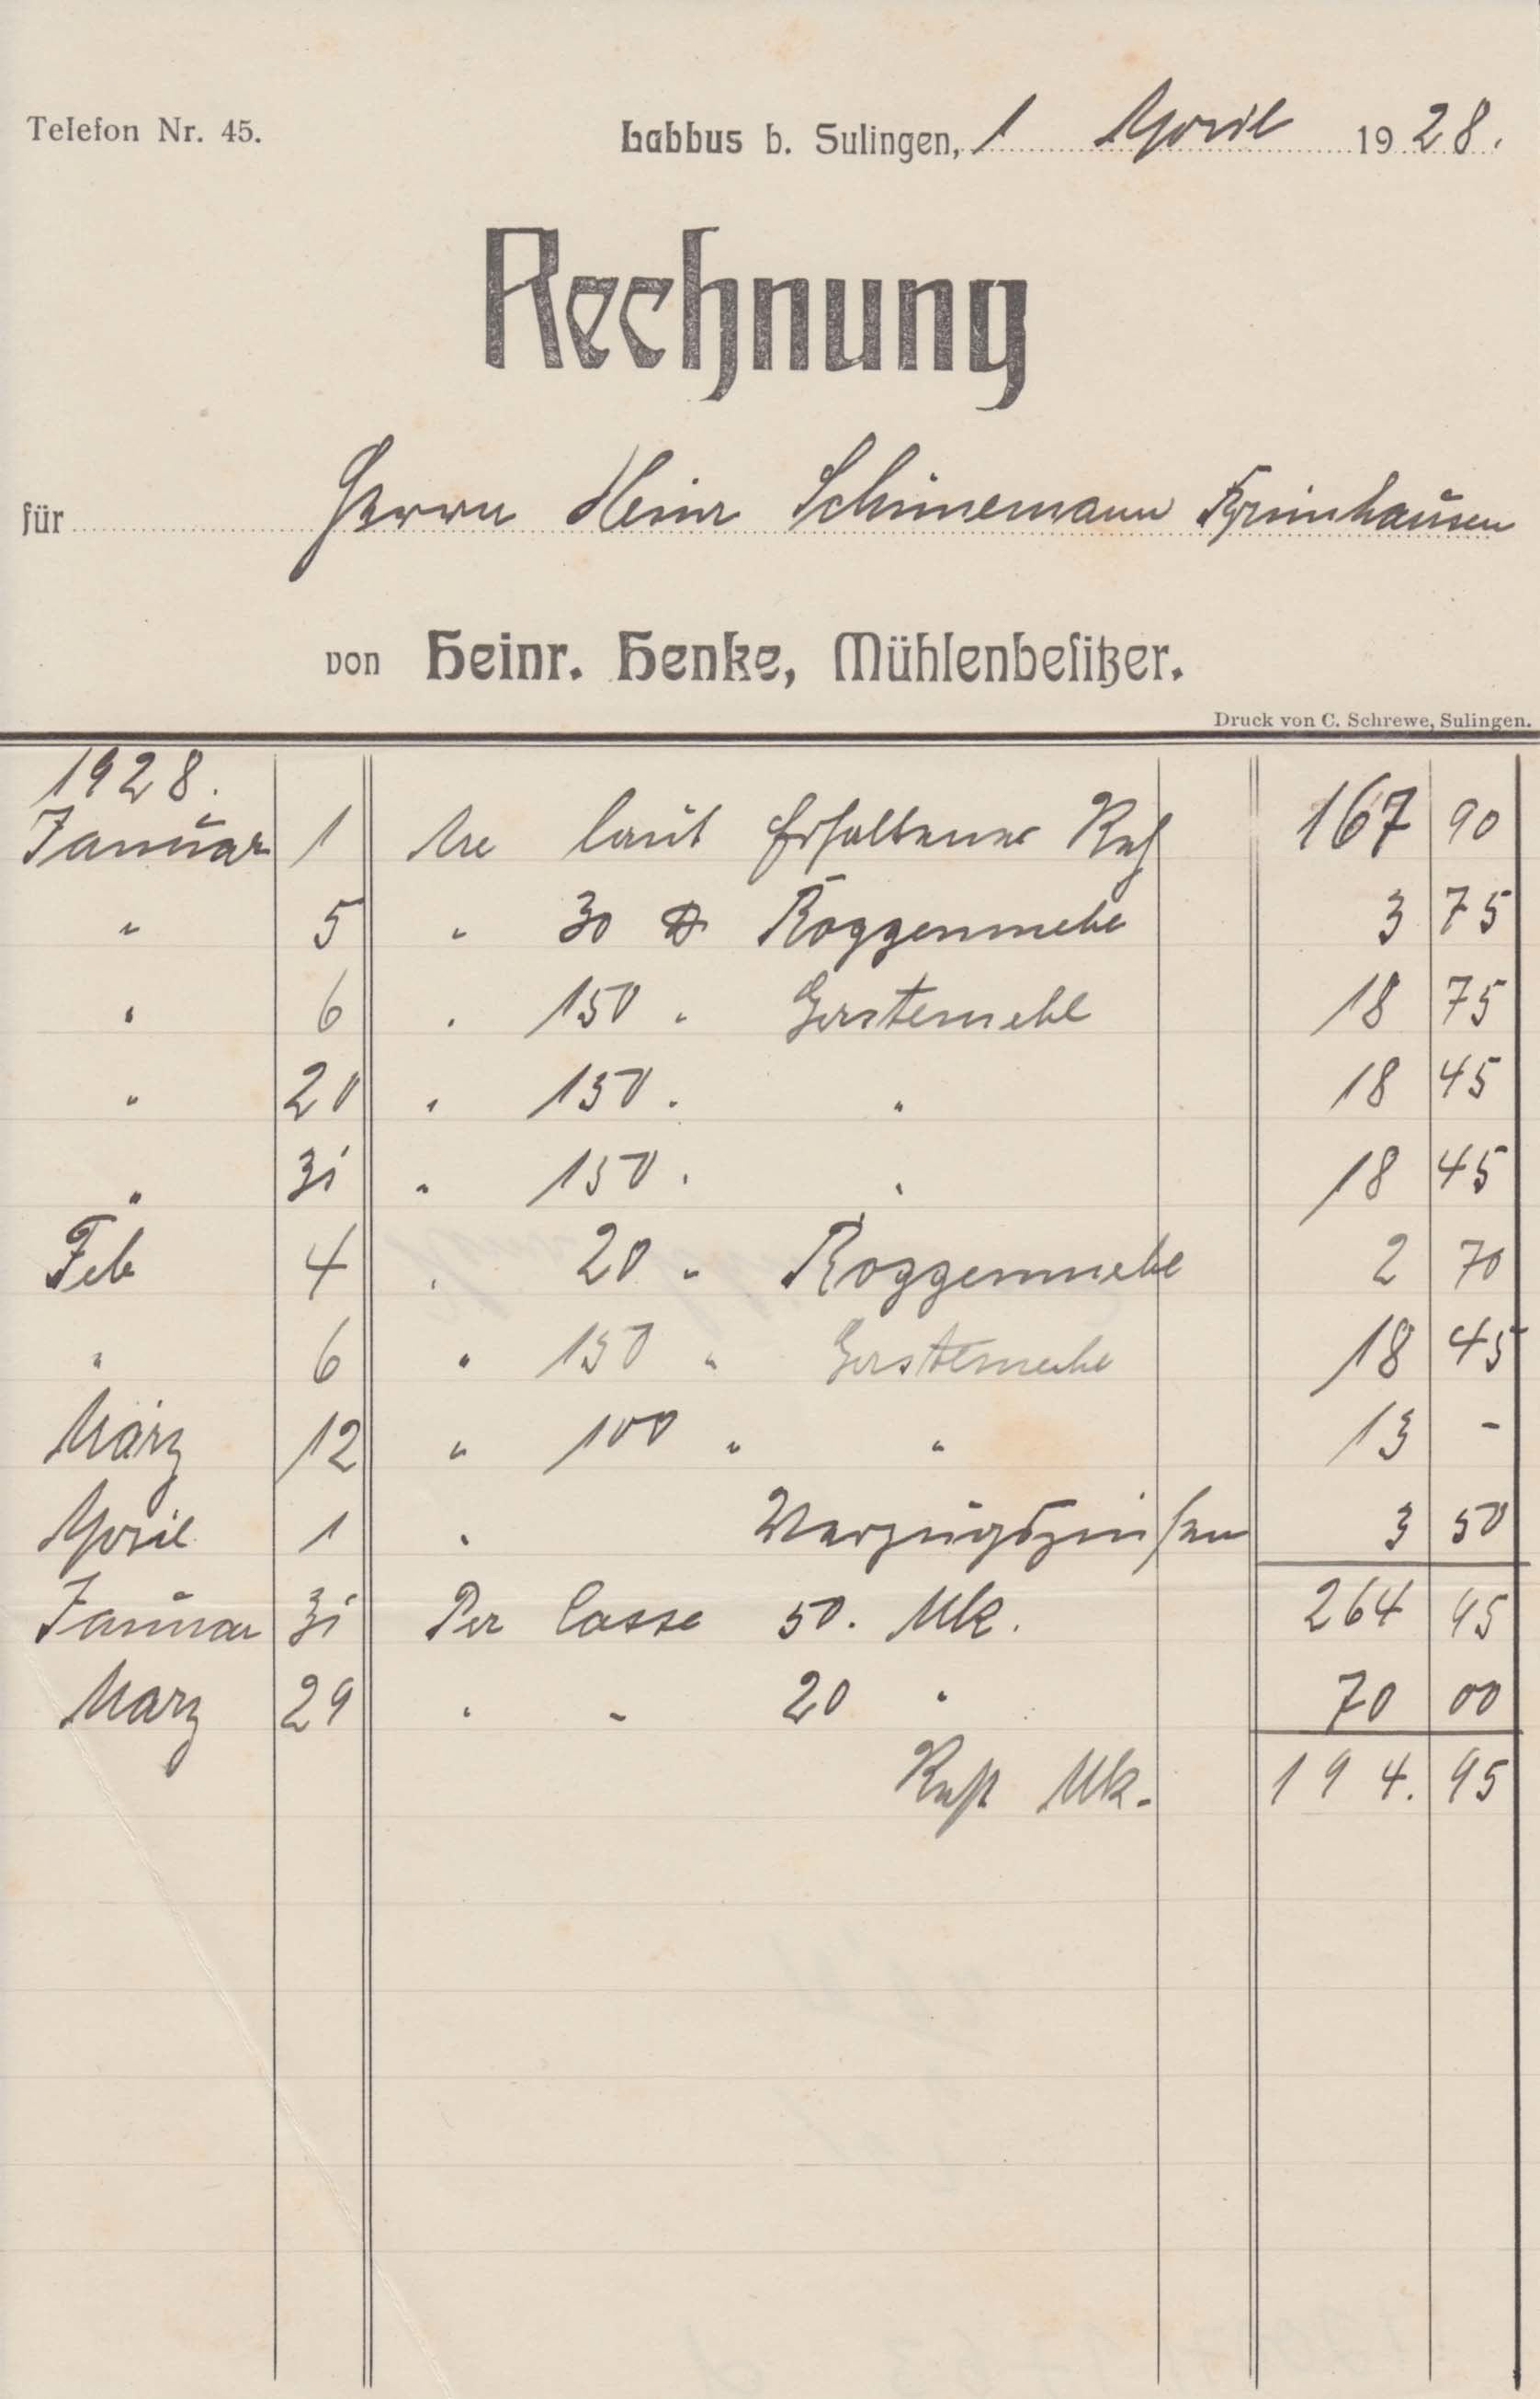 Telefon Nr. 45.
Labbus b. Sulingen, 1 April 1928.
Rechnung
für Herrn Heinr Schünemann
von Heinr. Henke, Mühlenbesitzer.
Druck von C. Schrewe, Sulingen.
1928.
Januar 1 An laut Erhaltener 167 90
" 5 " 30 ℔ Roggenmehl 3 75
" 6 " 150 " Gerstemehl 18 75
" 20 " 150 " " 18 45
" 31 " 150 " " 18 45
Feb 4 " 20 " Roggenmehl 2 70
" 6 " 150 " Gerstemehl 18 45
März 12 " 100 " " 13 -
April 1 " Verzugszinsen 3 50
Januar 31 Per Casse 50. Mk. 264 95
März 29 " " 20 " 70 00
Rest Mk. 194. 95